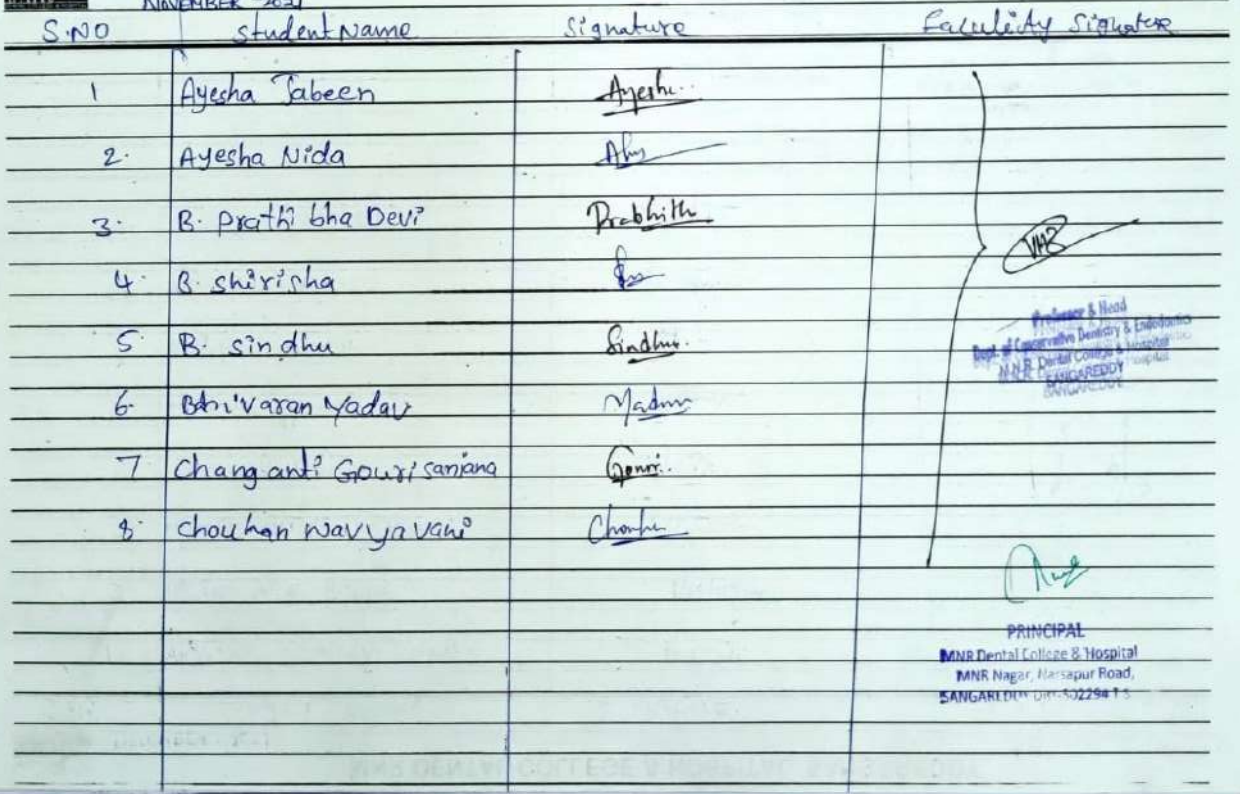 NOVEMBER 2021
S.NO Student Name Signature Faculity Signature
1 Ayesha Jabeen Ayesha
2. Ayesha Nida
3. B. Prathi bha Devi
4. B. Shirisha
5 B. Sindhu Sindhu
6. Yadav
7 Chaganti Gouri Sanjana Gouri
8. Chouhan Navya Vani
Professor & Head
Dept. of Conservative Dentistry & Endodontics
M.N.R. Dental College & Hospital
SANGAREDDY
PRINCIPAL
MNR Dental College & Hospital
MNR Nagar, Narsapur Road,
MNR DENTAL COLLEGE & HOSPITAL